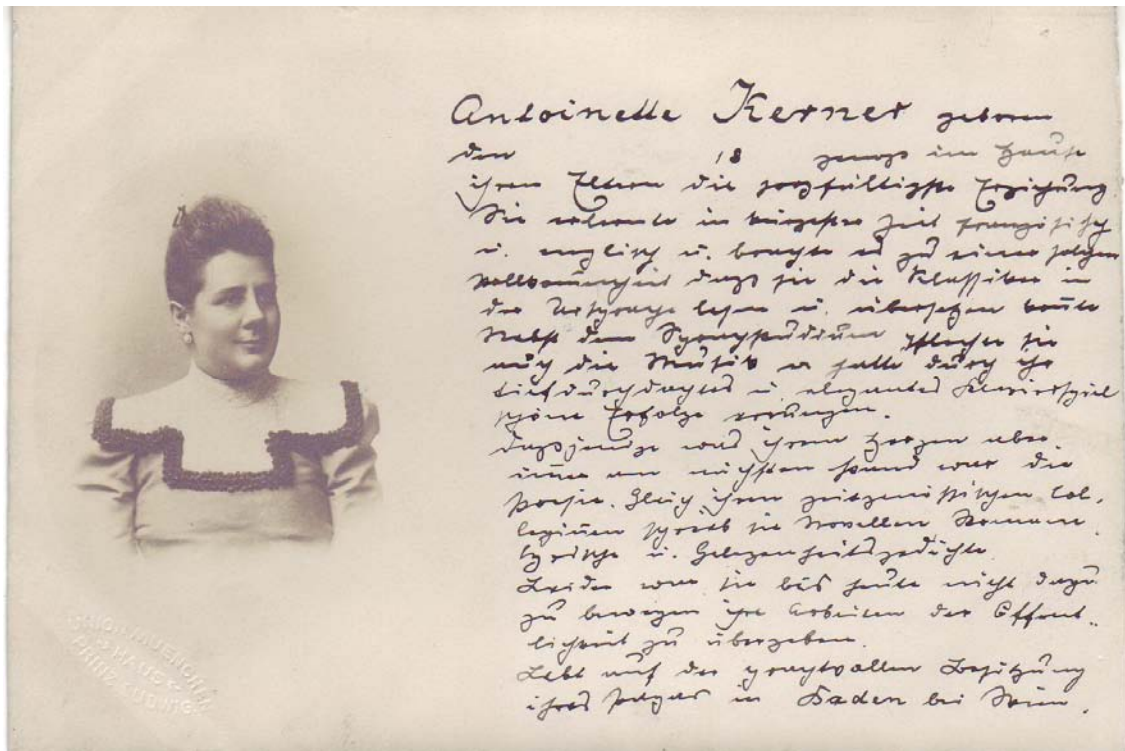 Antoinette Kerner geboren
den 18 genoss im Hause
ihrer Eltern die sorgfältigste Erziehung.
Sie erlernte in kürzester Zeit französisch
u. englisch u. brachte es zu einer solchen
Vollkom̅enheit dass sie die Klassiker in
der Ursprache lesen u. übersetzen kon̅te
Nebst dem Sprachstudium pflegte sie
auch die Musik u hatte durch ihr
tiefdurchdachtes u. elegantes Klavierspiel
schöne Erfolge errungen.
Dassjenige was ihrem Herzen aber
im̅er am nächsten stand war die
Poesie. Gleich ihren zeitgenössischen Col-
leginen schrieb sie Novellen Romane
Lyrische u. Gelegenheitsgedichte.
Leider war sie bis heute nicht dazu
zu bewegen ihre Arbeiten der Öffent-
lichkeit zu übergeben.
Lebt auf der prachtvollen Besitzung
ihres Papas in Baden bei Wien.
HAUS
PRINZ LUDWIG